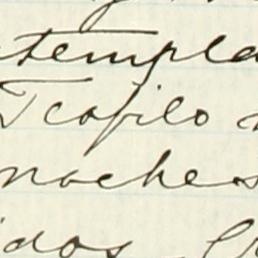 templa
Teofilo
noches
idos